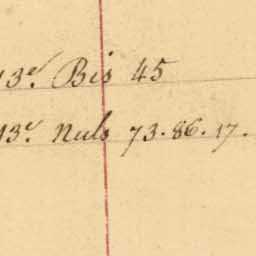 13e. Bis 45
13e. Nuls 73. 86. 17.